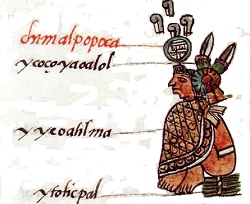 chimalpopoca
ycoçoyaoalol
yyeoatilma
ytoticpal